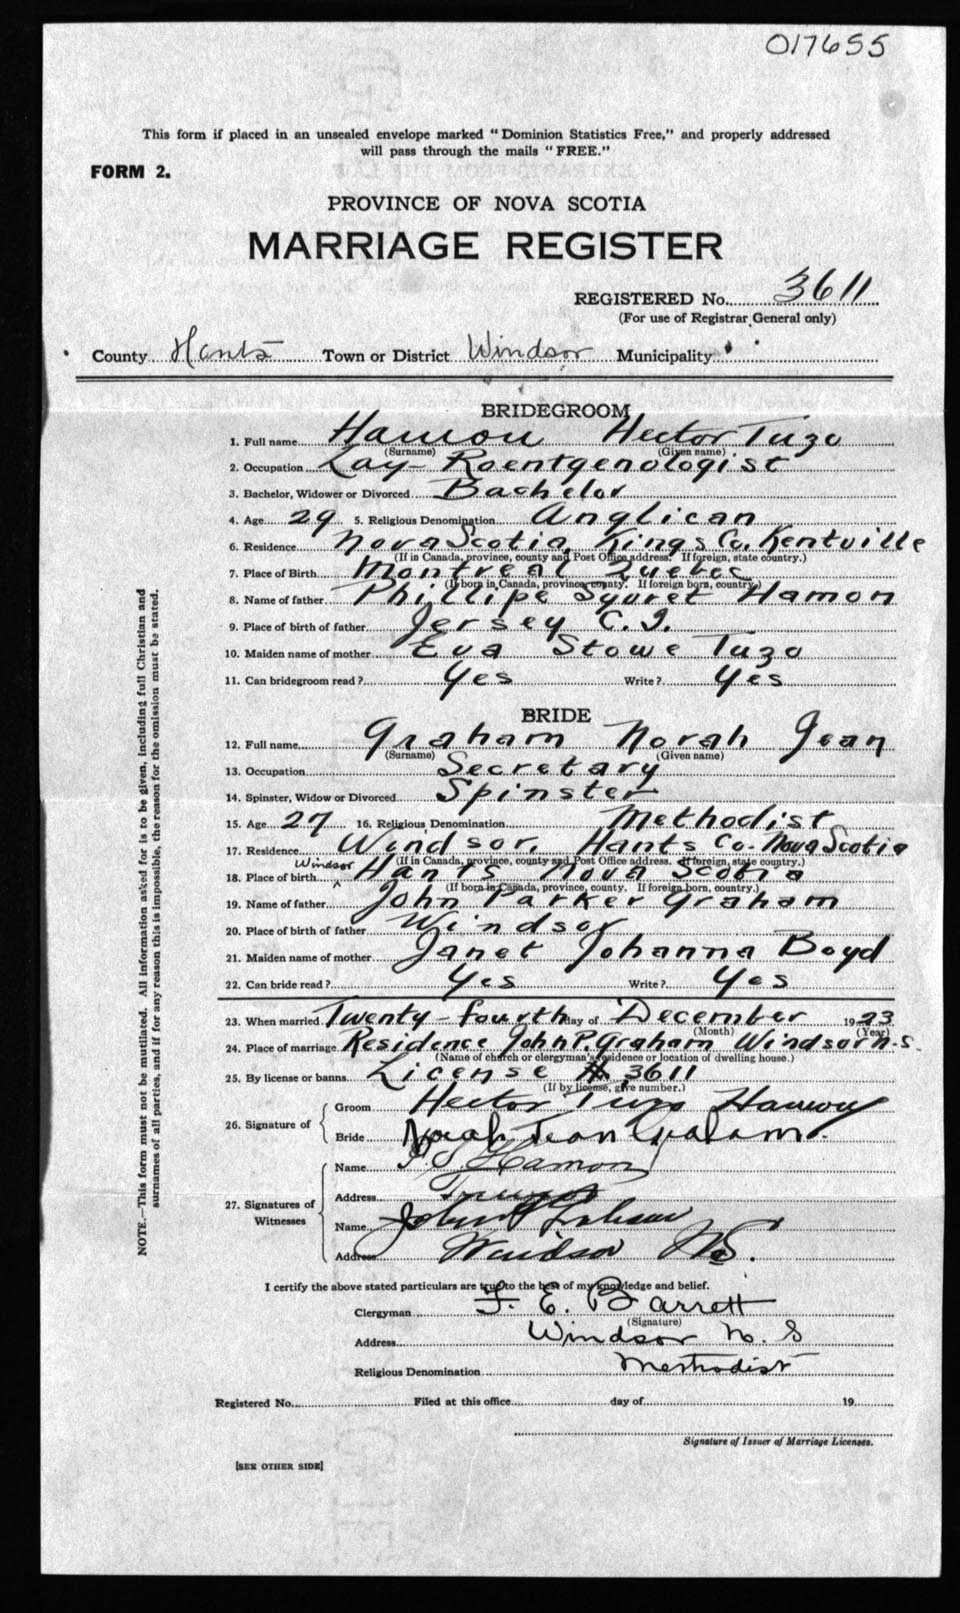 017655
This form if placed in an unsealed envelope marked "Dominion Statistics Free," and properly addressed
will pass through the mails "FREE."
FORM 2.
PROVINCE OF NOVA SCOTIA
MARRIAGE REGISTER
REGISTERED No. 3611
(For use of Registrar General only)
County Hants Town or District Windsor Municipality
BRIDEGROOM
1. Full name Hamon Hector Tuzo
(Surname) (Given name)
2. Occupation Lay-Roentgenologist
3. Bachelor, Widower or Divorced Bachelor
4. Age 29 5. Religious Denomination Anglican
6. Residence Nova Scotia, Kings Co. Kentville
(If in Canada, province, county and Post Office address. If foreign, state country.)
7. Place of Birth Montreal Quebec
(If born in Canada, province, county. If foreign born, country.)
8. Name of father Phillipe Syvret Hamon
9. Place of birth of father Jersey C.I.
10. Maiden name of mother Eva Stowe Tuzo
11. Can bridegroom read? Yes Write? Yes
BRIDE
12. Full name Graham Norah Jean
(Surname) (Given name)
13. Occupation Secretary
14. Spinster, Widow or Divorced Spinster
15. Age 27 16. Religious Denomination Methodist
17. Residence Windsor, Hants Co. Nova Scotia
(If in Canada, province, county and Post Office address. If foreign, state country.)
18. Place of birth Windsor Hants Nova Scotia
(If born in Canada, province, county. If foreign born, country.)
19. Name of father John Parker Graham
20. Place of birth of father Windsor
21. Maiden name of mother Janet Johanna Boyd
22. Can bride read? Yes Write? Yes
23. When married Twenty-fourth day of December 1923
(Month) (Year)
24. Place of marriage Residence John P. Graham Windsor N.S.
(Name of church or clergyman's residence or location of dwelling house.)
25. By license or banns License # 3611
(If by license, give number.)
26. Signature of Groom Hector Tuzo Hamon
Bride Norah Jean Graham.
27. Signatures of Witnesses
Name P S Hamon
Address
Name John P Graham
Address Windsor NS.
I certify the above stated particulars are true to the best of my knowledge and belief.
Clergyman F. E. Barrett
(Signature)
Address Windsor N. S
Religious Denomination Methodist
Registered No. Filed at this office day of 19
Signature of Issuer of Marriage Licenses.
[SEE OTHER SIDE]
NOTE.—This form must not be mutilated. All information asked for is to be given, including full Christian and
surnames of all parties, and if for any reason this is impossible, the reason for the omission must be stated.